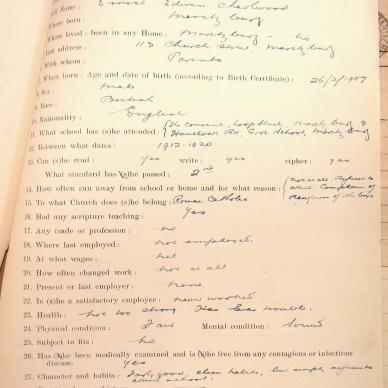 Full Name: Ernest Edwin Charlwood
Where born: Maritzburg
Whose lived: been in any Home: Maritzburg - no
Last address: 113 Church Street, Maritzburg
With whom: Parents
7. When born: Age and date of birth (according to Birth Certificate): 26/3/1907
8. Sex: Male
9. Race: British
10. Nationality: English
11. What school has (s)he attended: The Convent, Loop Street, M'burg &
Rd, Govt School, Maritzburg
12. Between what dates: 1912-1920
13. Can (s)he read: yes write: yes cipher: yes
What standard has (s)he passed: 2nd
14. How often run away from school or home and for what reason: Refuses to
attend. Complains of
of the boys
15. To what Church does (s)he belong: Roman Catholic
16. Had any scripture teaching: yes
17. Any trade or profession: no
18. Where last employed: not employed
19. At what wages: nil
20. How often changed work: not at all
21. Present or last employer: None
22. Is (s)he a satisfactory employee: never worked
23. Health: not too strong Has ear trouble.
24. Physical condition: Fair Mental condition: Sound
25. Subject to fits: no
26. Has (s)he been medically examined and is (s)he free from any contagious or infectious
disease. Yes
27. Character and habits: Fairly good, clean habits, but
attend school.